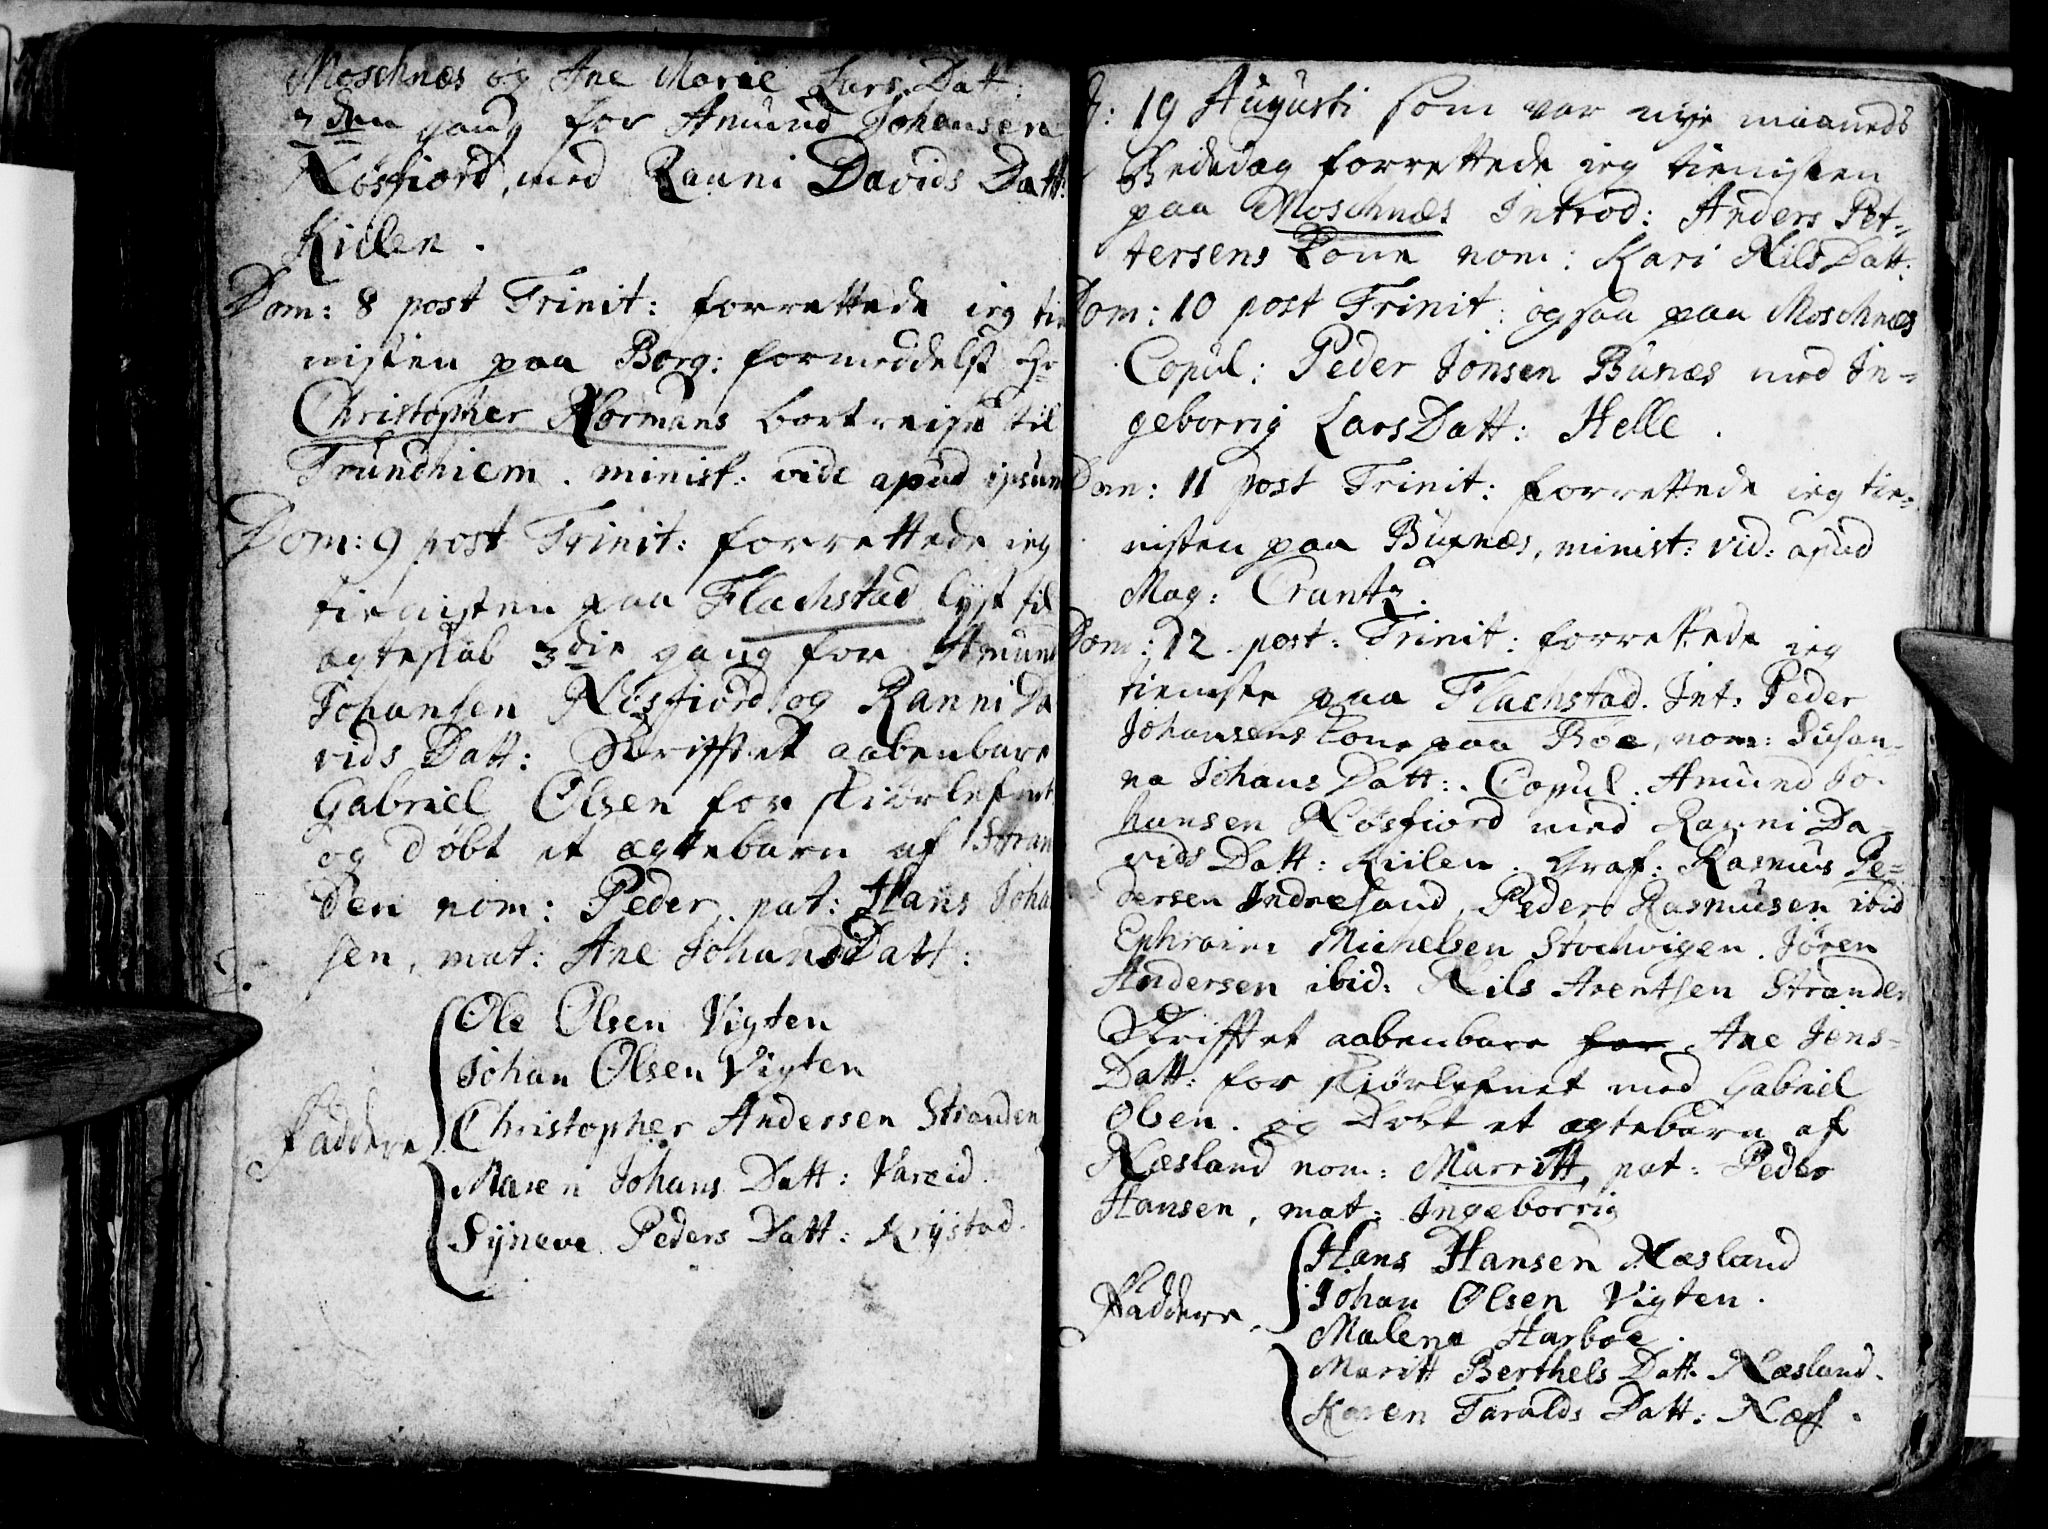 Moschnæs og Ane Marie Lars Datt:
2den gang for Amund Johansen
Nøsfiord, med Ranni Davids Datt:
Kiilen.
Dom: 8 post Trinit: forrettede ieg tie
nisten paa Borg: formeddelst Hr
Christopher Normans bortreise til
Trundhiem. minist: vide apud ipsum
Dom: 9 post Trinit: forrettede ieg
tienisten paa Flachstad lyst til
ægteskab 3die gang for Amund
Johansen Nøsfiord og Ranni Da
vids Datt: Skrifftet aabenbare
Gabriel Olsen for skiørlefnet
og døbt et ægtebarn af Stran
den nom: Peder, pat: Hans Joha
sen, mat: Ane Johans Datt:
Ole Olsen Vigten
Johan Olsen Vigten
Christopher Andersen Stranden
Faddere
Maren Johans Datt: Vareid
Syneve Peders Datt: Krystad.
D: 19 Augusti som var nye maaneds
Bededag forrettede ieg tienisten
paa Moschnæs Introd: Anders Pet-
tersens Kone nom: Kari Nils Datt:
Dom: 10 post Trinit: ogsaa paa Moschnæs
Copul: Peder Jonsen Bunæs med In-
geborrig Lars Datt: Helle.
Dom: 11 post Trinit: forrettede ieg tie-
nisten paa Buxnæs, minist: vid: apud
Mag: Crantz.
Dom: 12 post: Trinit: forrettede ieg
tieniste paa Flachstad. Int: Peder
Johansens Kone paa Bøe, nom: Susan-
na Johans Datt:. Copul: Amund Jo-
hansen Nøsfiord med Ranni Da-
vids Datt: Kiilen. Graf: Rasmus Pe-
dersen Indresand, Peder Rasmusen ibid
Ephraim Michelsen Stochvigen. Jøren
Andersen ibid: Nils Arentsen Stranden
Skrifftet aabenbare for Ane Jens-
Datt: for skiørlefnet med Gabriel
Olsen. og Døbt et ægtebarn af
Næsland nom: Marritt, pat: Peder
Hansen, mat: Ingeborrig
Hans Hansen Næsland
Johan Olsen Vigten.
Faddere
Malene Harboe.
Maritt Berthels Datt. Næsland.
Karen Taralds Datt: Næss.